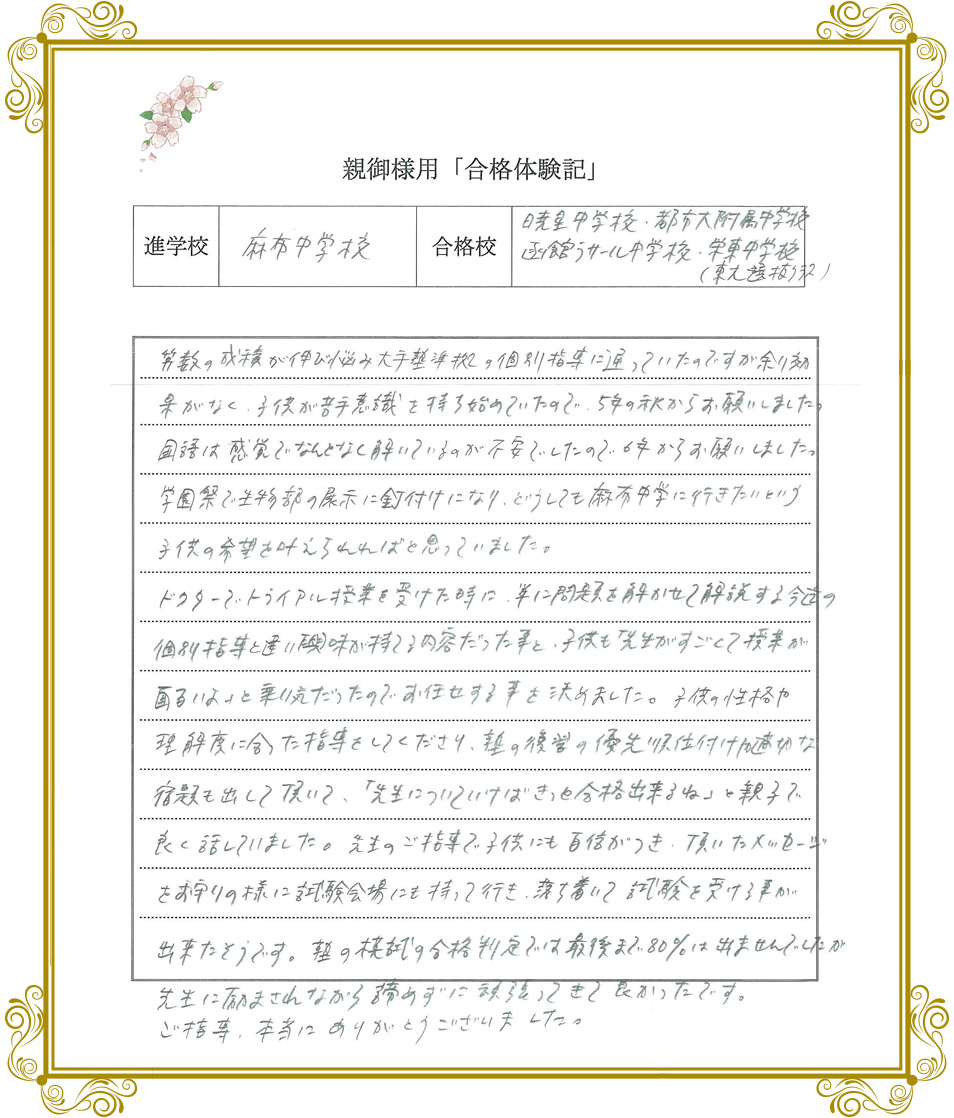 親御様用「合格体験記」
進学校 麻布中学校 合格校 暁星中学校・都市大附属中学校
函館ラサール中学校・栄東中学校
(東大選抜)
算数の成績が伸び悩み大手塾準拠の個別指導に通っていたのですが余り効
果がなく、子供が苦手意識を持ち始めていたので、5年の秋からお願いしました。
国語は感覚でなんとなく解いているのが不安でしたので6年からお願いしました。
学園祭で生物部の展示に釘付けになり、どうしても麻布中学に行きたいという
子供の希望を叶えられればと思っていました。
ドクターでトライアル授業を受けた時に、単に問題を解かせて解説する今迄の
個別指導と違い興味が持てる内容だった事と、子供も「先生がすごくて授業が
面白いよ」と乗り気だったのでお任せする事を決めました。子供の性格や
理解度に合った指導をしてくださり、塾の復習の優先順位付けや適切な
宿題も出して頂いて、「先生についていけばきっと合格出来るね」と親子で
良く話していました。先生のご指導で子供にも自信がつき、頂いたメッセージ
をお守りの様に試験会場にも持って行き、落ち着いて試験を受ける事が
出来たそうです。塾の模試の合格判定では最後まで80%は出ませんでしたが
先生に励まされながら諦めずに頑張ってきて良かったです。
ご指導、本当にありがとうございました。